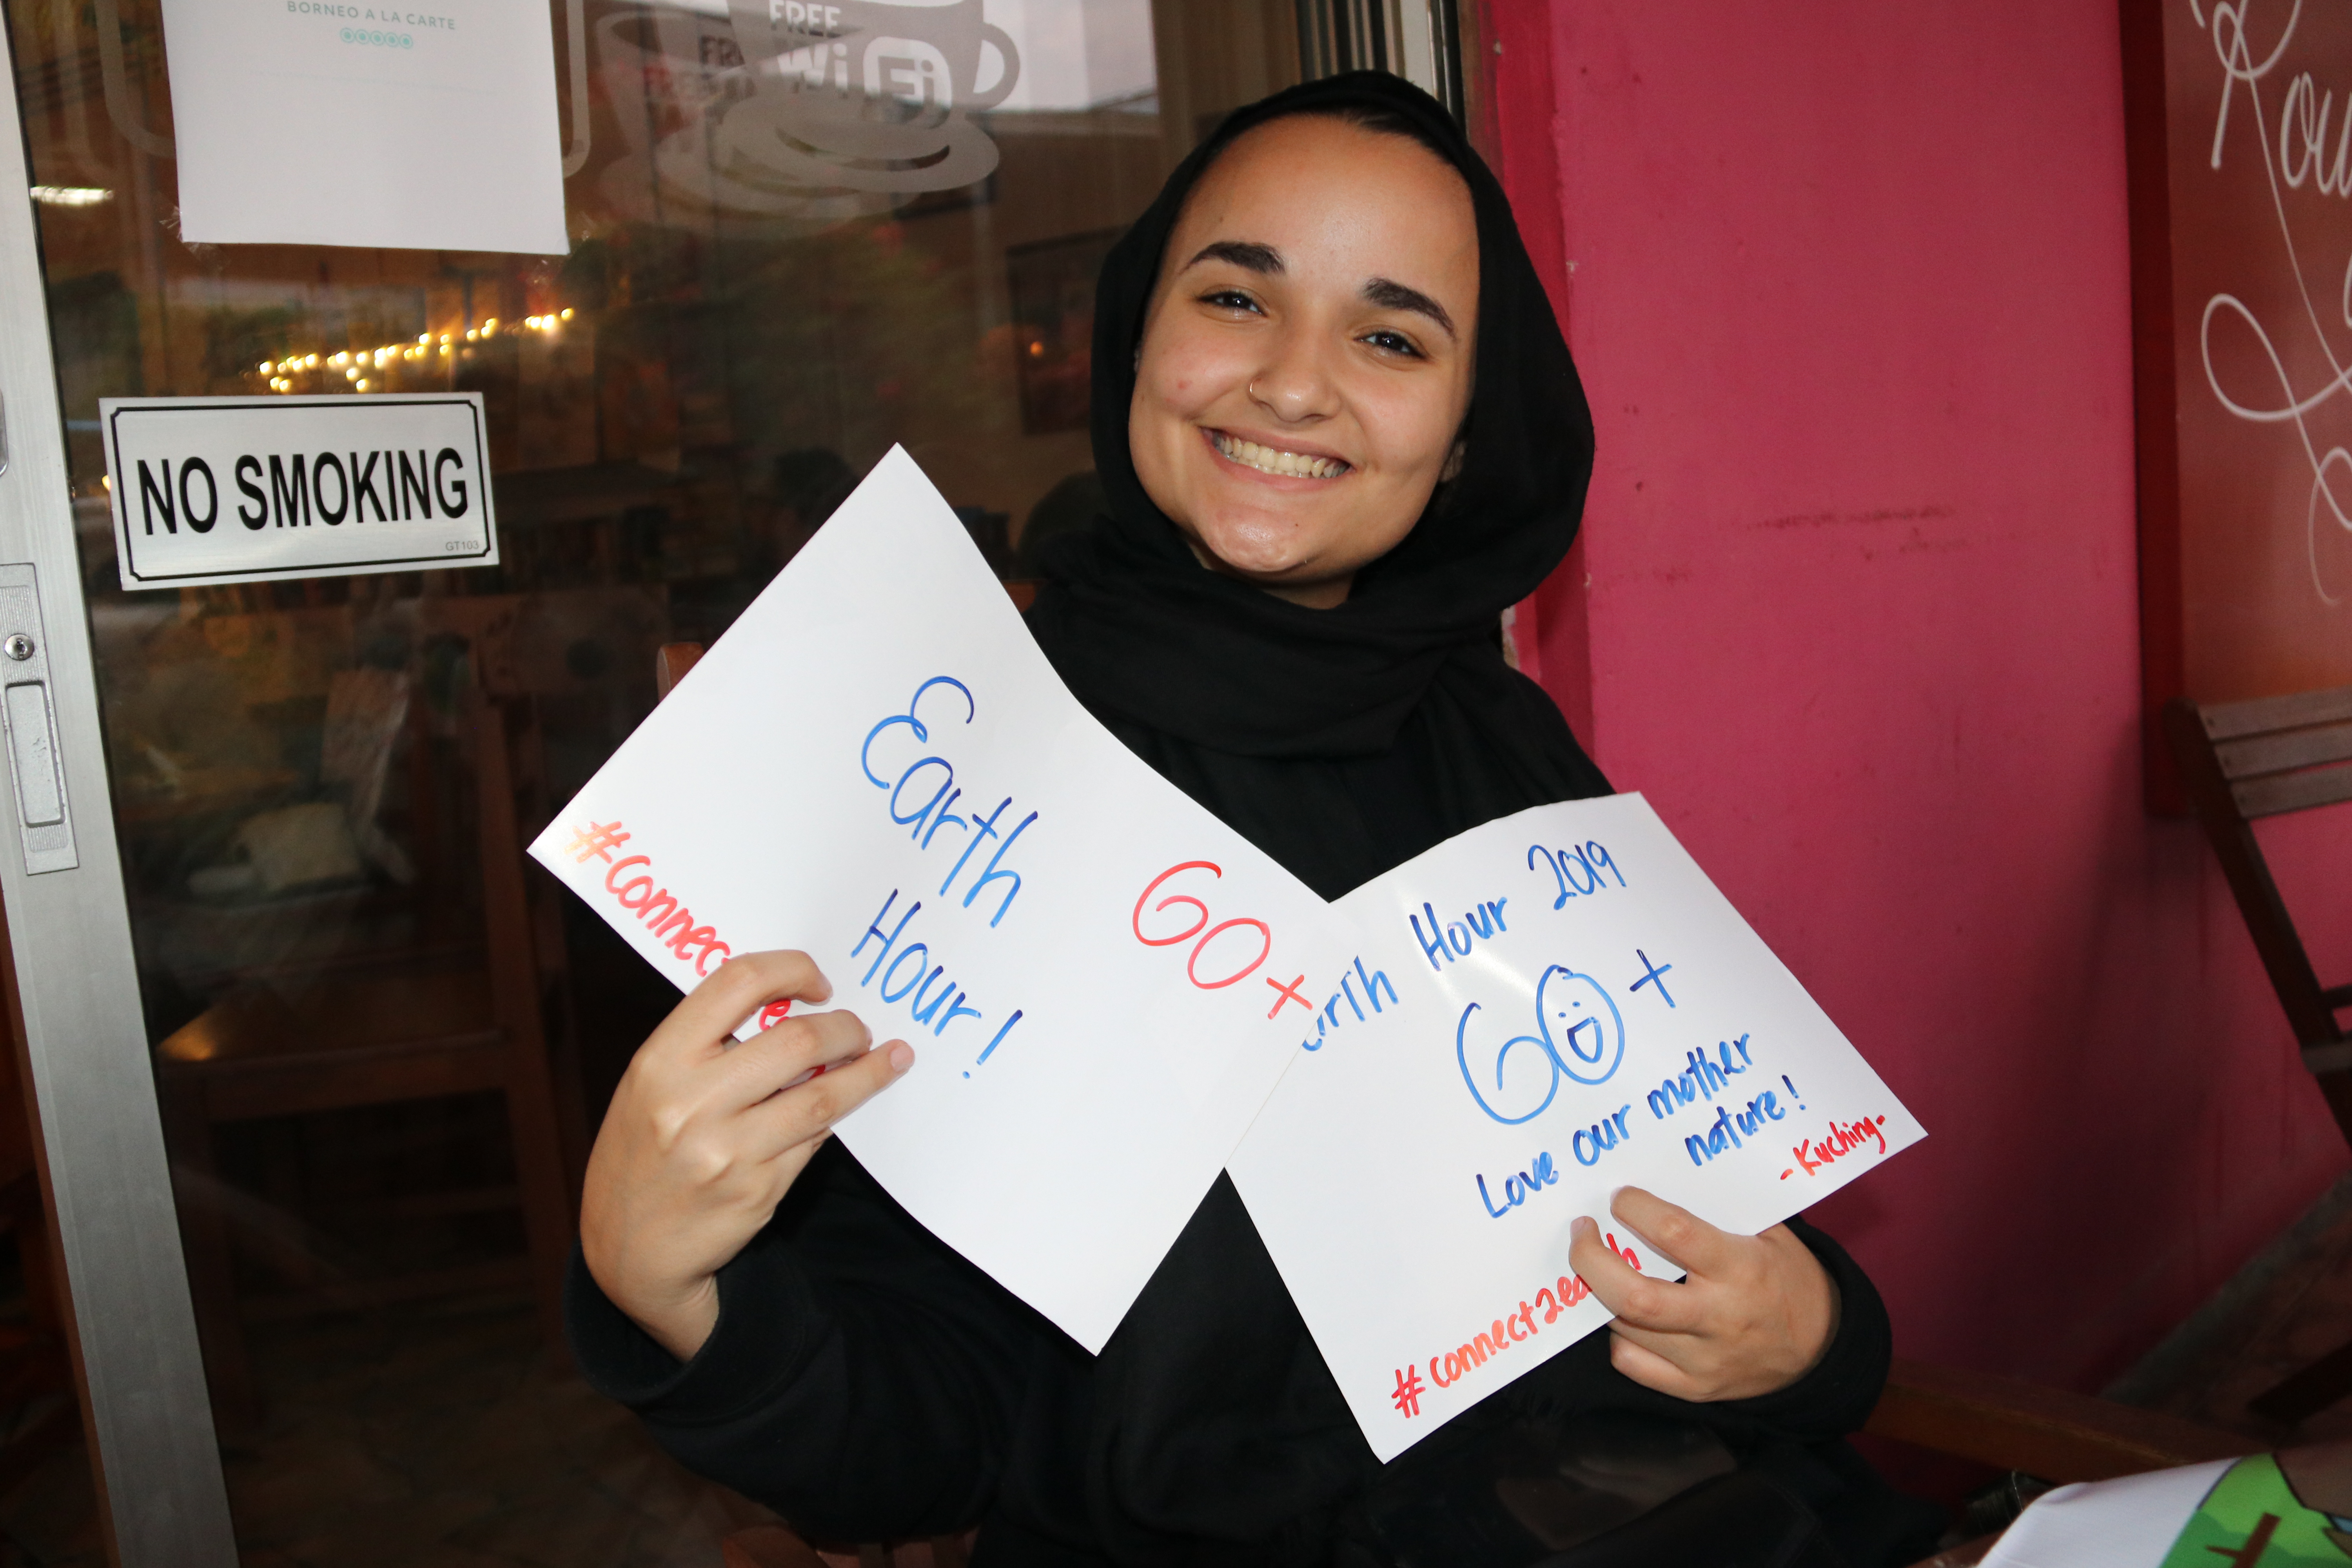 BORNEO A LA CARTE
FREE
WiFi
NO SMOKING
GT103
Earth
Hour!
60+
#connec
Hour 2019
60+
Love our mother
nature!
-Kuching-
#connect2earth